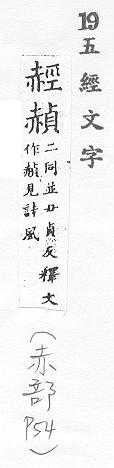 19 五經文字
䞓赬
二同並丑貞反釋文
作頳見詩風
(赤部 P54)